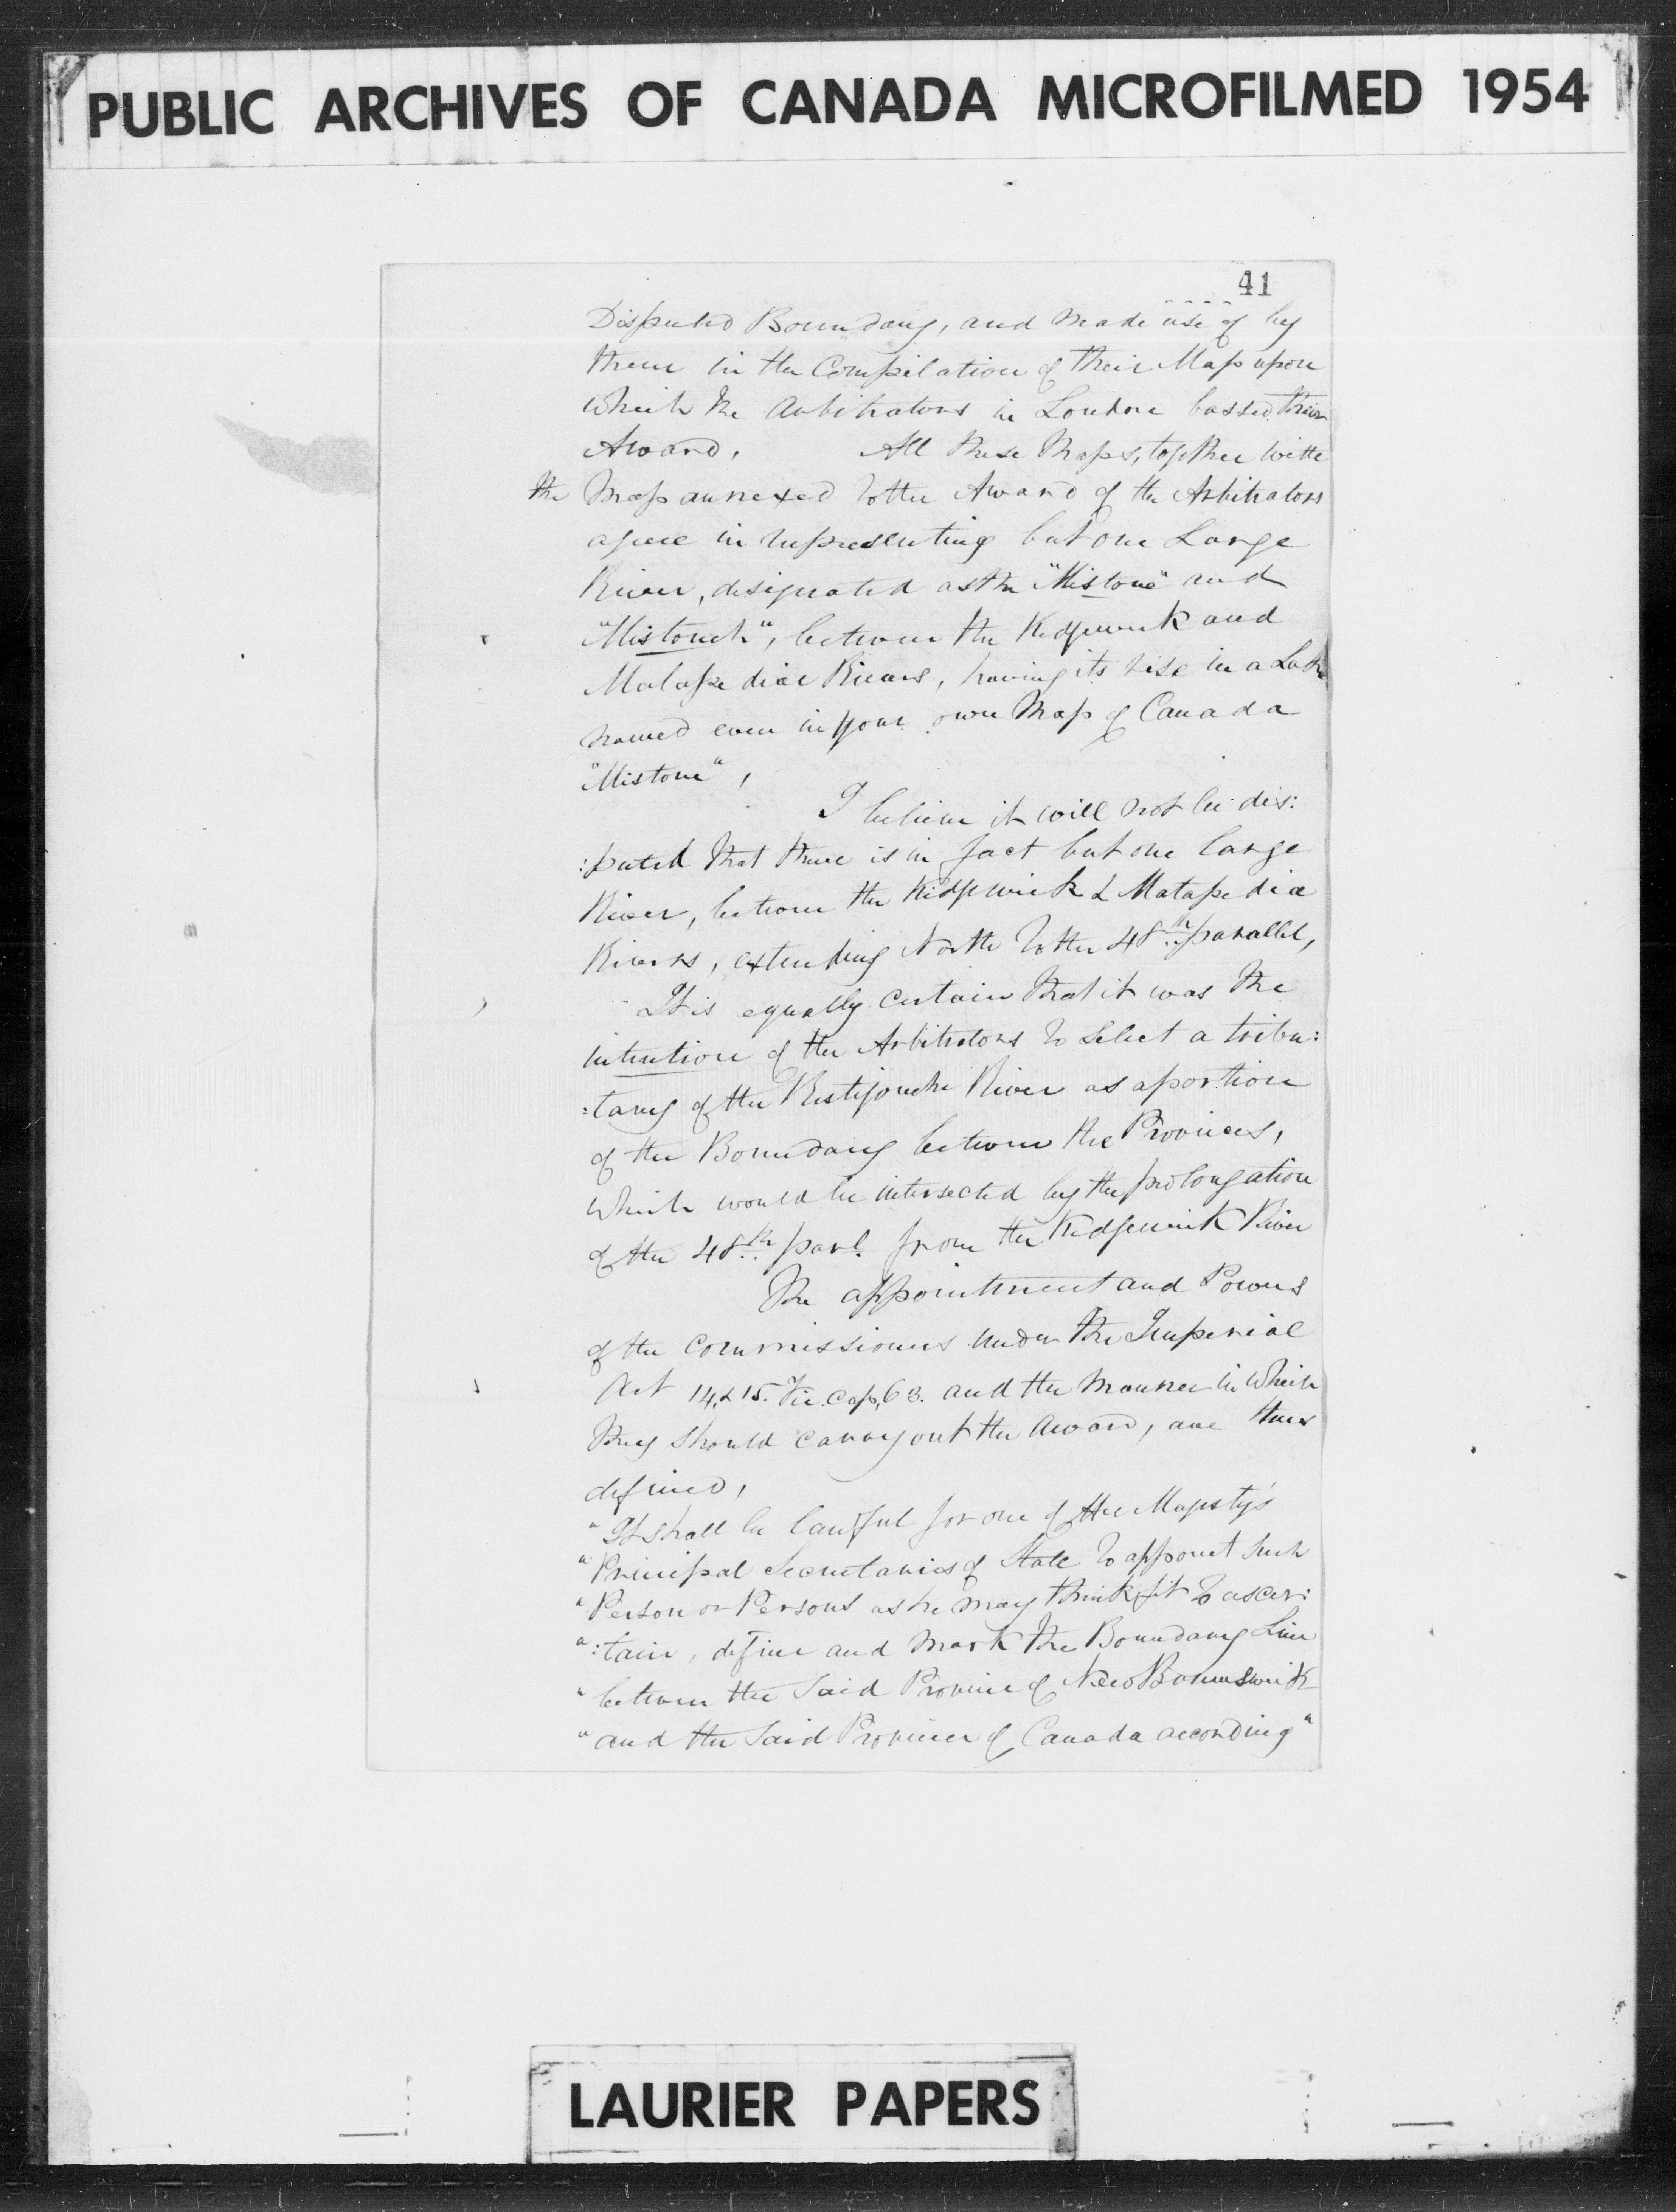 PUBLIC ARCHIVES OF CANADA MICROFILMED 1954
41
Disputed Boundary, and made use of by
them in the Compilation of their Map upon
which the Arbitrators in London bassed their
Award. All these Maps, together with
the Map annexed to the Award of the Arbitrators
agree in representing but one Large
River, designated as the "Mistoue" and
"Mistouch", between the Kedgwick and
Matapedia Rivers, having its rise in a Lake
named even in your own Map of Canada
"Mistoue",
I believe it will not be dis:
:puted that there is in fact but one large
River, between the Kedgwick & Matapedia
Rivers, extending North to the 48th parallel,
It is equally certain that it was the
intention of the Arbitrators to select a tribu:
:tary of the Restigouche River as a portion
of the Boundary between the Provinces,
which would be intersected by the prolongation
of the 48th parl. from the Kedgewick River
The appointment and Powers
of the Commissioners under the Imperial
Act 14 & 15. Vic. Cap. 63. and the manner in which
they should carry out the award, are thus
defined,
"It shall be lawful for one of Her Majesty's
"Principal Secretaries of State to appoint such
"Person or Persons as he may think fit to ascer:
":tain, define and mark the Boundary Line
"between the said Province of New Brunswick
"and the said Province of Canada according"
LAURIER PAPERS